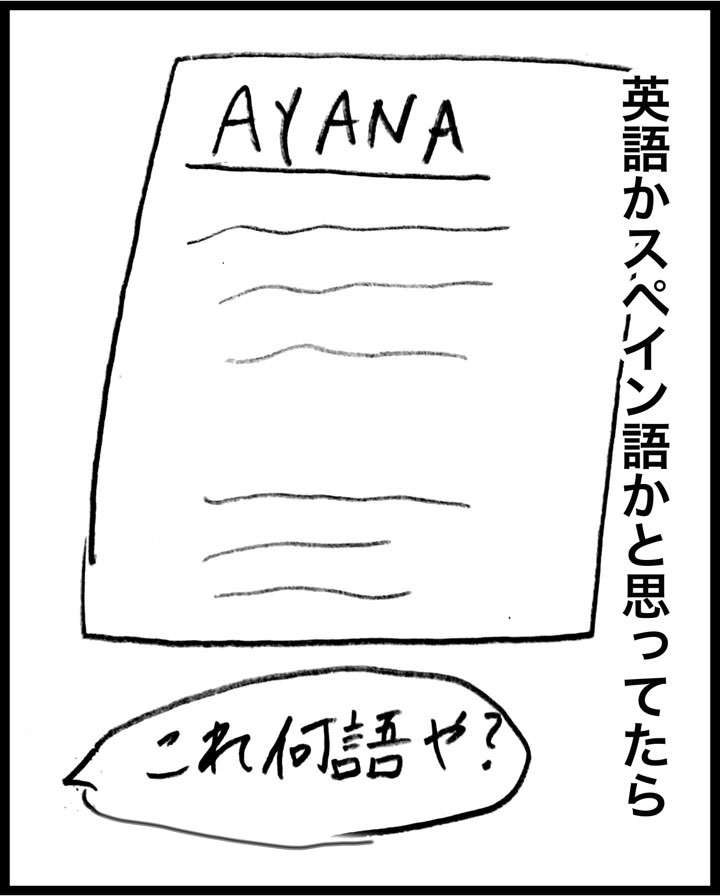 英語かスペイン語かと思ってたら
AYANA
これ何語や?